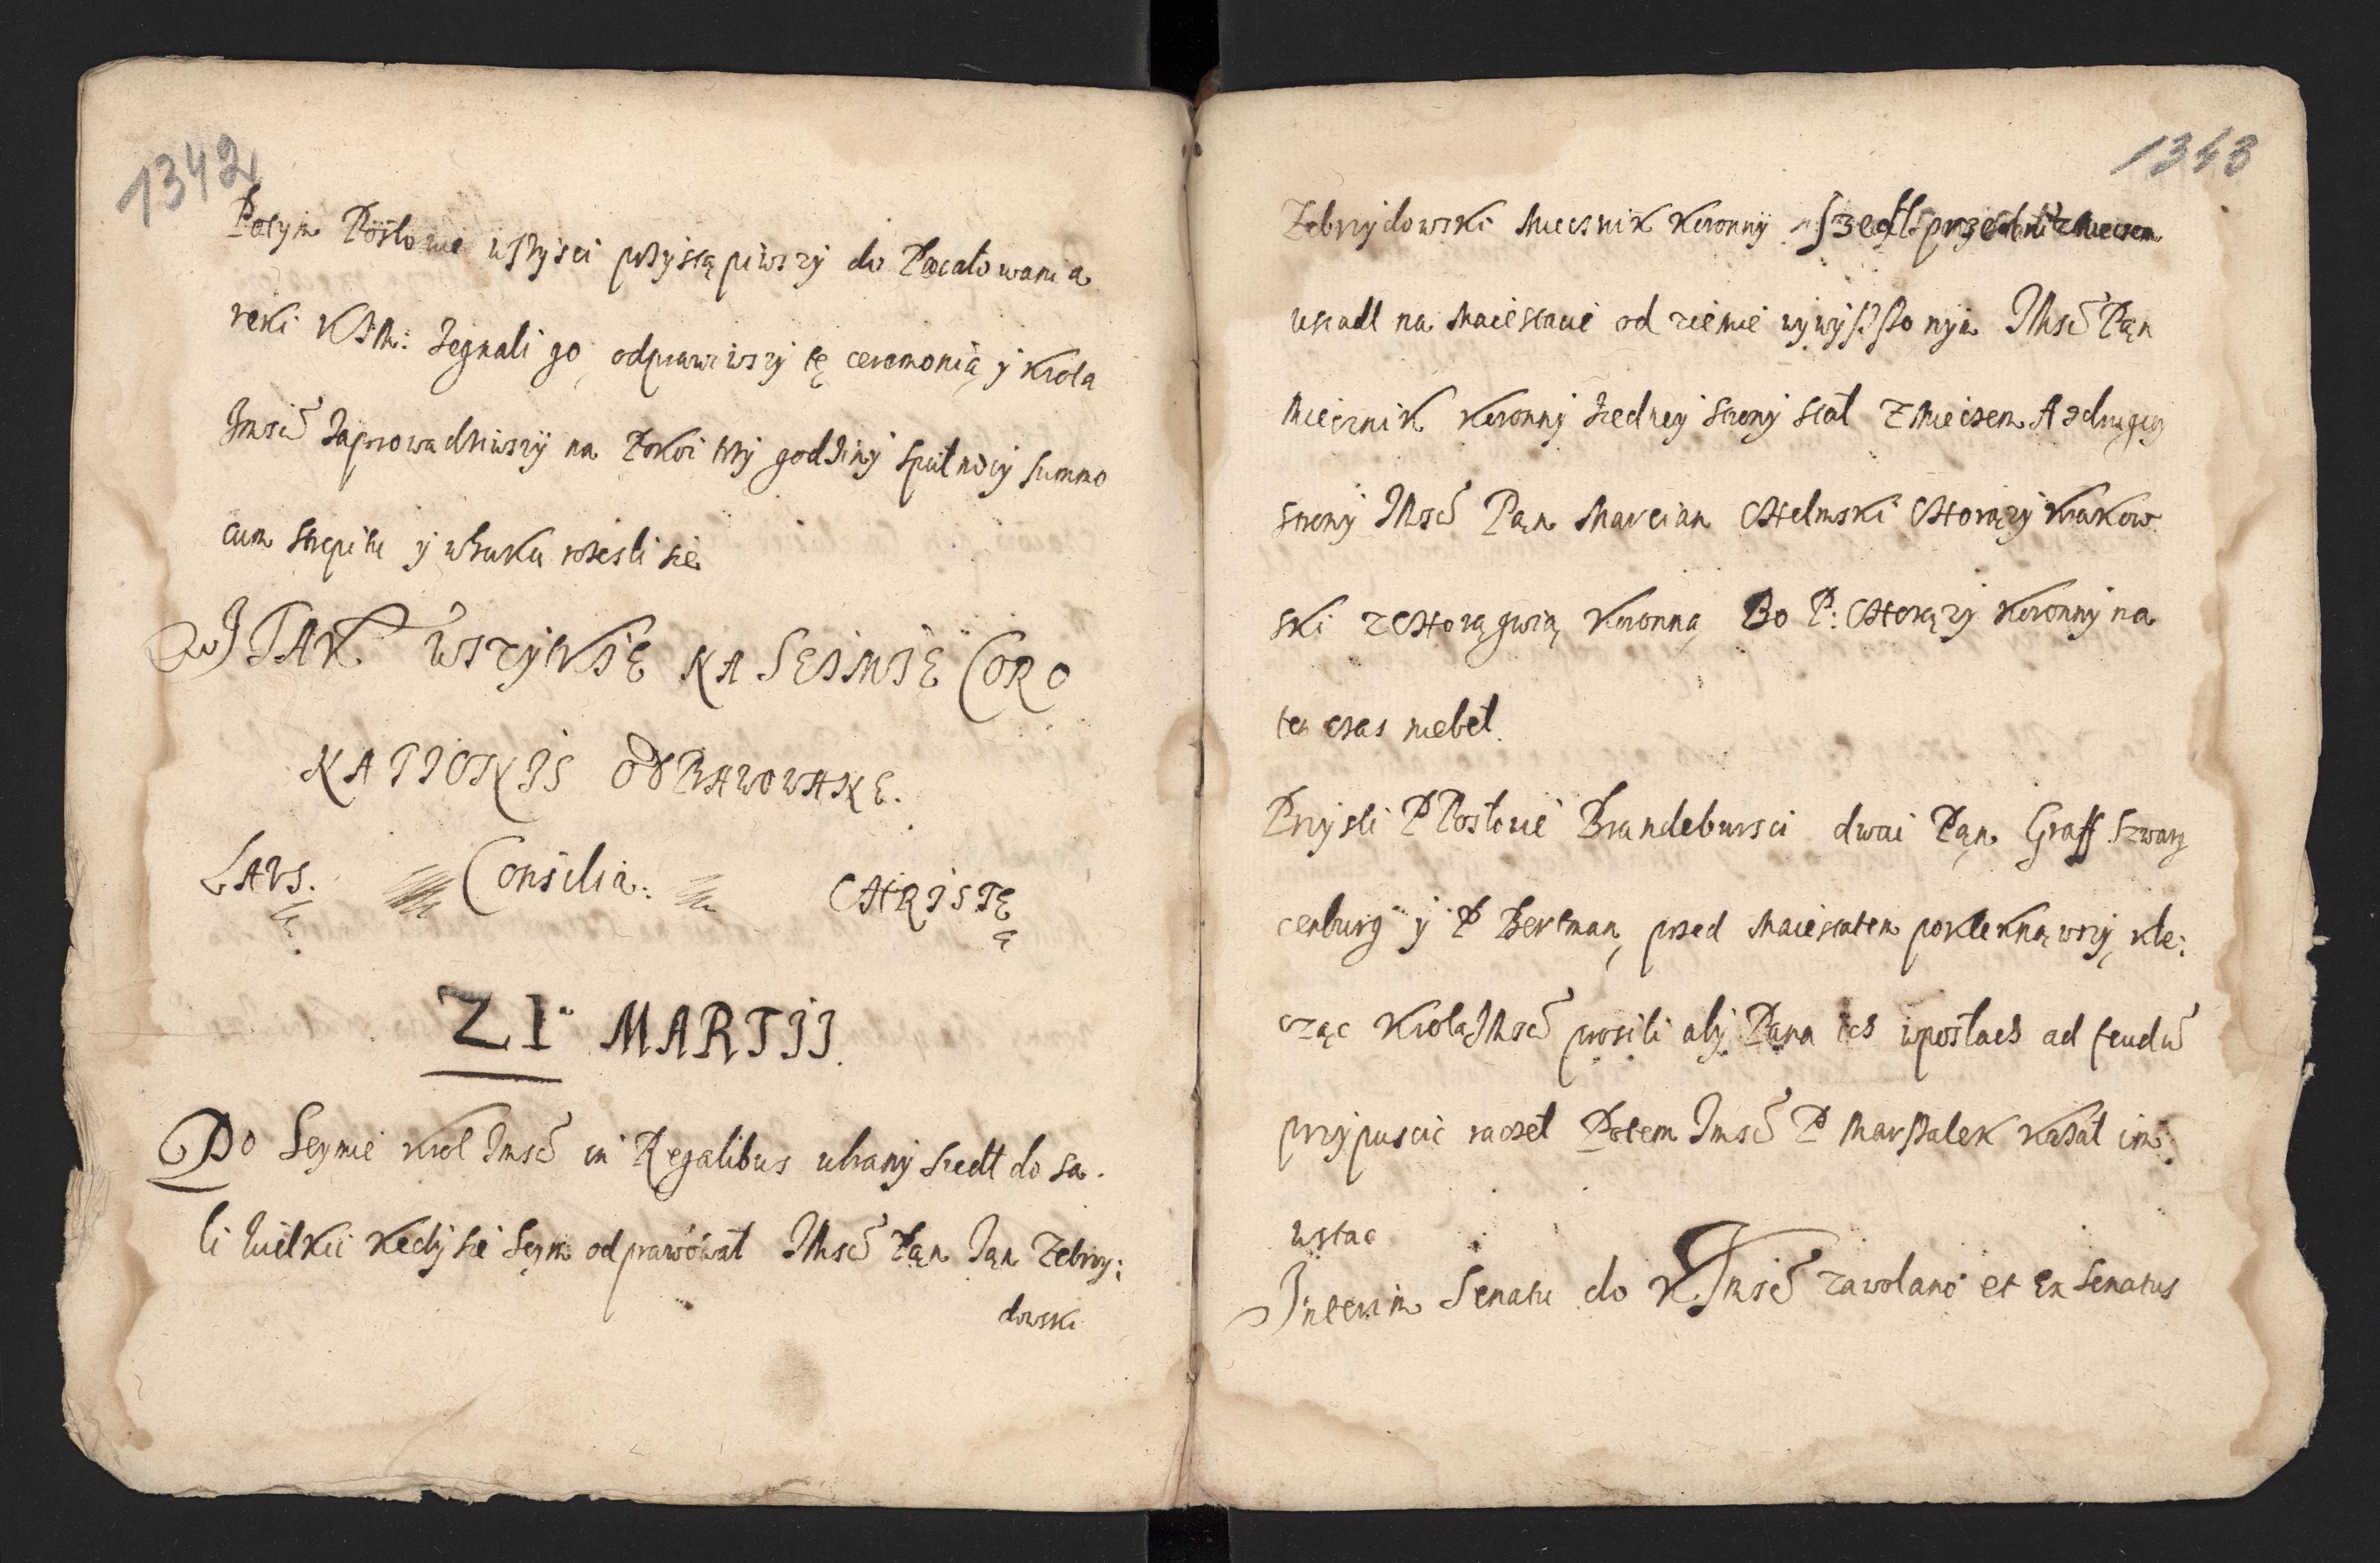 1342
Potym Posłowie wszysci przystąpiwszy do Pocałowania
reki KJM: żegnali go, odprawiwszy tę ceremonią y Krola
Jmsci zaprowadziwszy na Pokoi trzy godziny spułnocy summo
cum strepitu y whuku rozesli sie
I TAK WSZYTKIE NA SEIMIE CORO
NATIONIS ODPRAWOWANE.
LAUS. Consilia. CHRISTE
21 MARTII.
Po Seymie Krol Jmsc in Regalibus ubrany szedł do sa.
li wielkii kędy sie Seym odprawówał JMsc Pan Jan Zebrzy:
dowski
1343
Zebrzydowski Miecznik Koronny szedł przednim zmieczem
usiadl na Maiestacie od ziemie wywyszszonym JMsc Pan
Miecznik Koronny zedney strony stał zmieczem A zdrugiey
strony JMsc Pan Marcian Chełmski Chorąży Krakow
ski zChorągwią Koronną Bo P: Chorąży Koronny na
ten czas niebeł.
Przysli PPosłowie Brandebursci dwai Pan Graff Szwarz
cenburg y P Bertman, przed Maiestatem poklęknąwszy, klę:
cząc Krola JMsc prosili aby Pana ich wposłach ad feudū
przypuscic raczeł Potem Jmsc P Marszałek kazał im
wstac
Interim Senatu do KJmsc zawołano et Ex Senatus